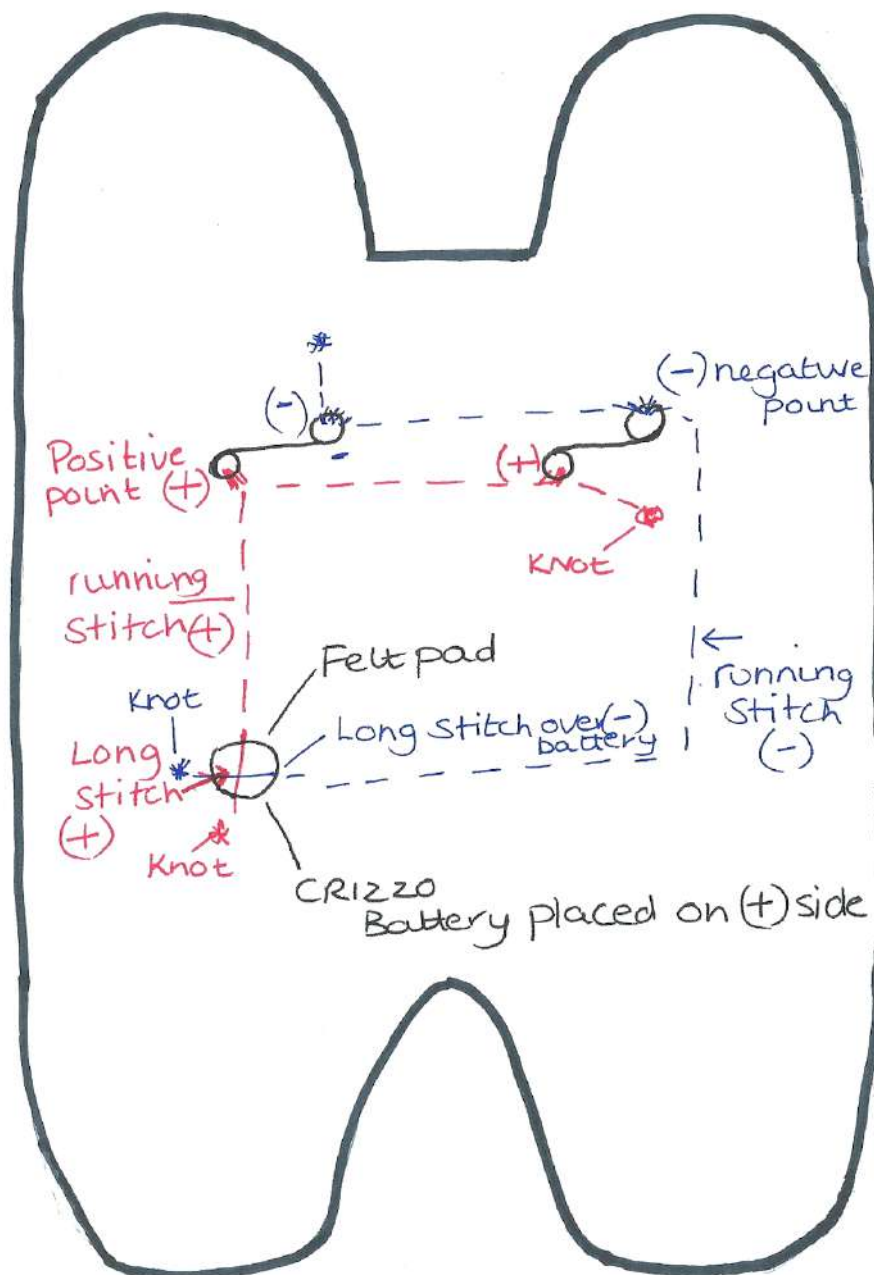 (-)
(-) negative
point
Positive
point (+)
(+)
KNOT
running
stitch (+)
Felt pad
Knot
Long stitch over (-)
battery
running
Stitch
(-)
Long
stitch
(+)
Knot
CR1220
Battery placed on (+) side